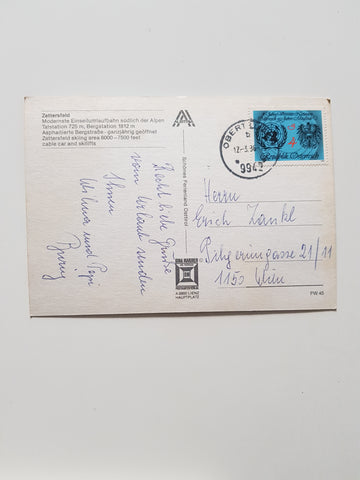 Zettersfeld
Modernste Einseilumlaufbahn südlich der Alpen
Talstation 725 m, Bergstation 1812 m
Asphaltierte Bergstraße - ganzjährig geöffnet
Zettersfeld skiing area 6000-7500 feet
cable car and skilifts
Recht liebe Grüsse
vom Urlaub senden
Ihnen
und Pepi
Schönes Ferienland Osttirol
A 9900 LIENZ
HAUPTPLATZ
OBERT
b
9942
Republik Österreich
Herrn
Erich Zankl
Pilgerimgasse 21/11
1150 Wien
PW 45